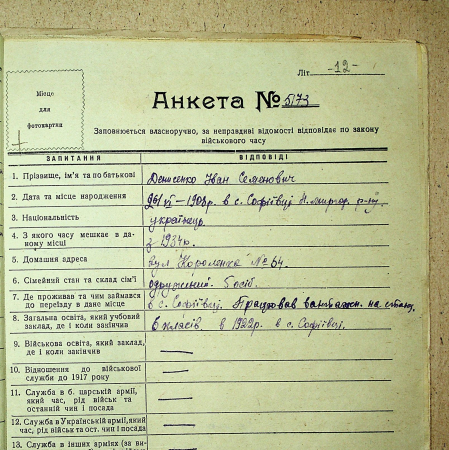 Літ. -12-
Місце
для
фотокартки
Анкета № 5173
Заповнюється власноручно, за неправдиві відомості відповідає по закону
військового часу
ЗАПИТАННЯ ВІДПОВІДІ
1. Прізвище, ім'я та по батькові Денисенко Іван Семенович
2. Дата та місце народження VI – 1908р. в с. Софіївці
3. Національність українець
4. З якого часу мешкає в да-
ному місці з 1934р.
5. Домашня адреса вул Короленка № 64.
6. Сімейний стан та склад сім'ї одружений. 5 осіб.
7. Де проживав та чим займався
до переїзду в дане місце в с. Софіївці. Працював на
8. Загальна освіта, який учбовий
заклад, де і коли закінчив 6 класів. в 1922р. в с. Софіївці.
9. Військова освіта, який заклад,
де і коли закінчив —
10. Відношення до військової
служби до 1917 року —
11. Служба в б. царській армії,
який час, рід військ та
останній чин і посада —
12. Служба в Українській армії, який
час, рід військ та ост. чин і посада —
13. Служба в інших арміях (за ви-